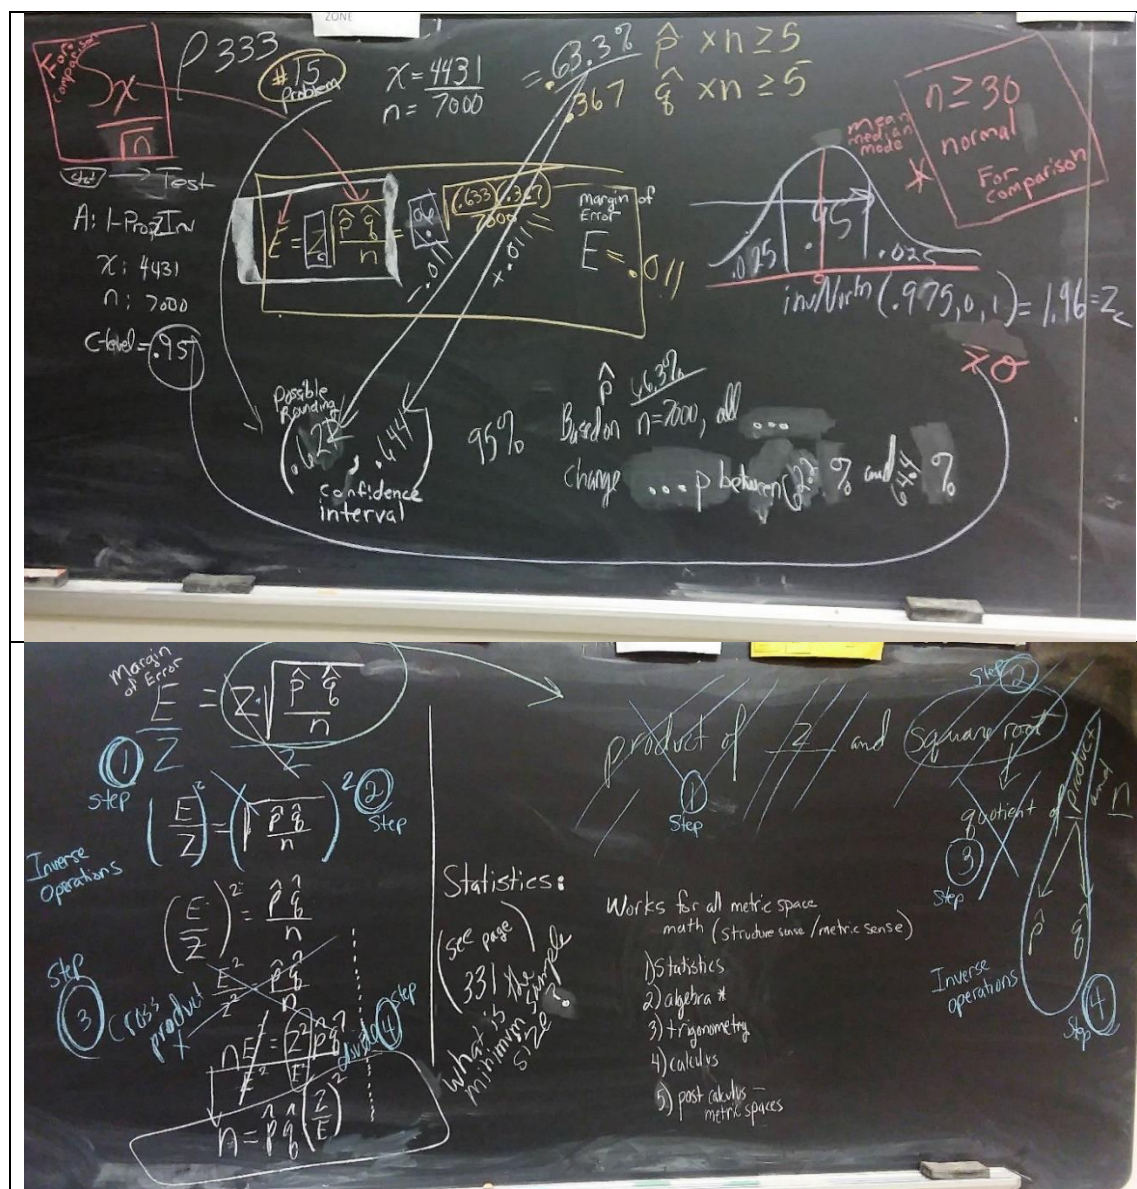 ZONE
For comparison
Sx
√n
p 333
#15
Problem
x = 4431
n = 7000
= .63.3%
.367
p̂ × n ≥ 5
q̂ × n ≥ 5
mean
median
mode
n ≥ 30
normal
For comparison
Stat → Test
A: 1-PropZInv
x: 4431
n: 7000
C-level = .95
E = Zc √(p̂ q̂ / n) = √((.633)(.367) / 7000)
margin of
Error
E = .011
-.011
+.011
.025 .95 .025
invNorm(.975,0,1) = 1.96 = Zc
Possible
Rounding
(.622, .644)
confidence
interval
95%
p̂
Based on n=7000, all ...
change ... p between 62.2 % and 64.4 %
Margin
of Error
E = Z·√(p̂ q̂ / n)
Z Z
① Step
(E/Z)² = (√(p̂ q̂ / n))²
② Step
Inverse
Operations
(E/Z)² = p̂ q̂ / n
E²/Z² = p̂ q̂ / n
Step
③ Cross
product
x
nE² = Z² p̂ q̂
E² E²
divide ④ Step
n = p̂ q̂ (Z/E)²
Statistics:
(see page)
331 the
What is
minimum sample
size?
product of Z and square root
① Step
Step ②
quotient of product and n
③
Step
p̂ q̂
Inverse
operations
Step ④
Works for all metric space
math (structure sense / metric sense)
1) Statistics
2) algebra *
3) trigonometry
4) calculus
5) post calculus –
metric spaces